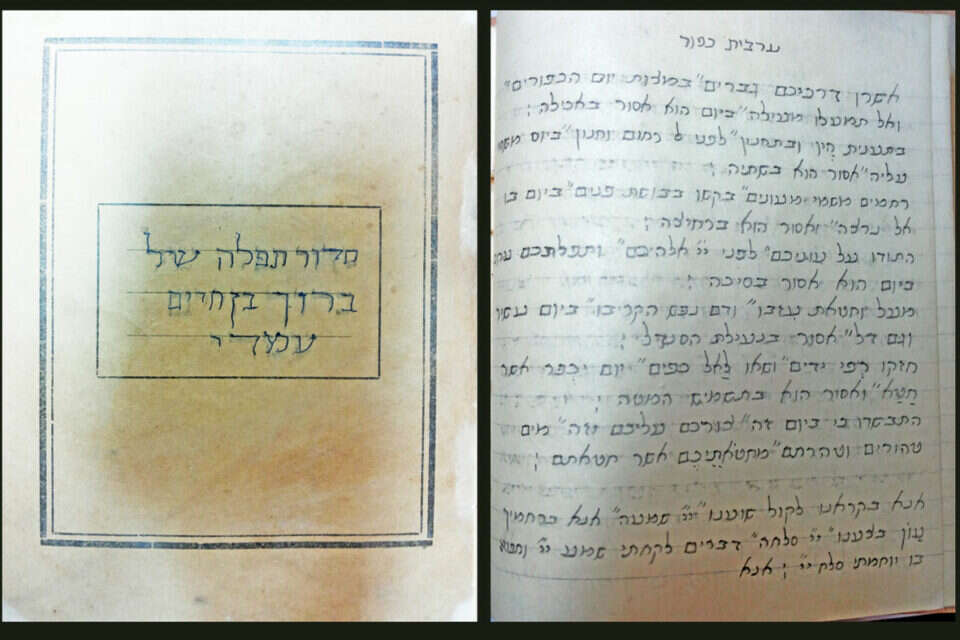 סדור תפלה של
ברוך בן חדים
עמדי
ערבית כפור
אשרן דרכיכם גברים" במצות יום הכפורים"
ואל תמעלו מעילה" ביום הוא אסור באכילה ;
בתענית ובתחנון" לפני רחום וחנון" ביום
עליה" אסור הוא בשתיה ;
רחמים משמי מעונים" בקשו בבושת פנים" ביום בו
אל ואסור הוא ברחיצה ;
התודו על עוניכם" לפני ייי אלהיכם" ותפלתכם
ביום הוא אסור בסיכה ;
מעל וחטאת עזבו" ודם נפש הקריבו" ביום
וגם דל" אסור בנעילת הסנדל ;
חזקו רפי ידים" ושאו לאל כפים" יום יכפר אשר
חטא" ואסור הוא בתשמיש המטה ;
התבשרו בי ביום זה" עליכם מים
טהורים וטהרתם" מחטאתיכם אשר חטאתם ;
אנא בקראנו לקול שועינו" ייי שמעה" אנא ברחמיך
ייי סלחה" דברים לקחתי שמע ייי
בו סלח ייי" ; אנא